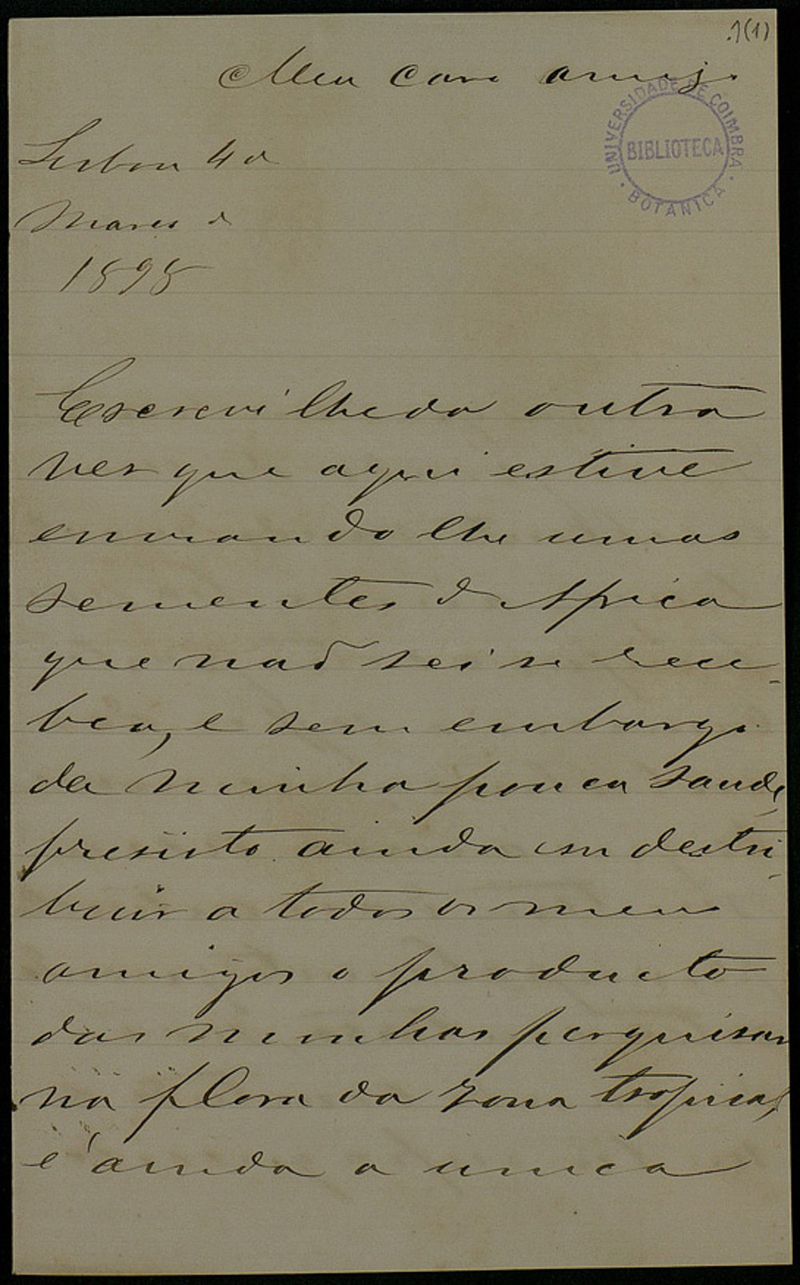 1(1)
Meu caro amigo
UNIVERSIDADE DE COIMBRA
BIBLIOTECA
BOTANICA
Lisboa 4 de
Março de
1898
Escrevi lhe da outra
ves que aqui estive
enviando lhe umas
sementes d'Africa
que naõ sei se rece-
beu, e sem embargo
da minha pouca saude,
presisto ainda em destri-
buir a todos os meus
amigos o producto
das minhas perquisas
na flora da zona tropical,
é ainda a unica